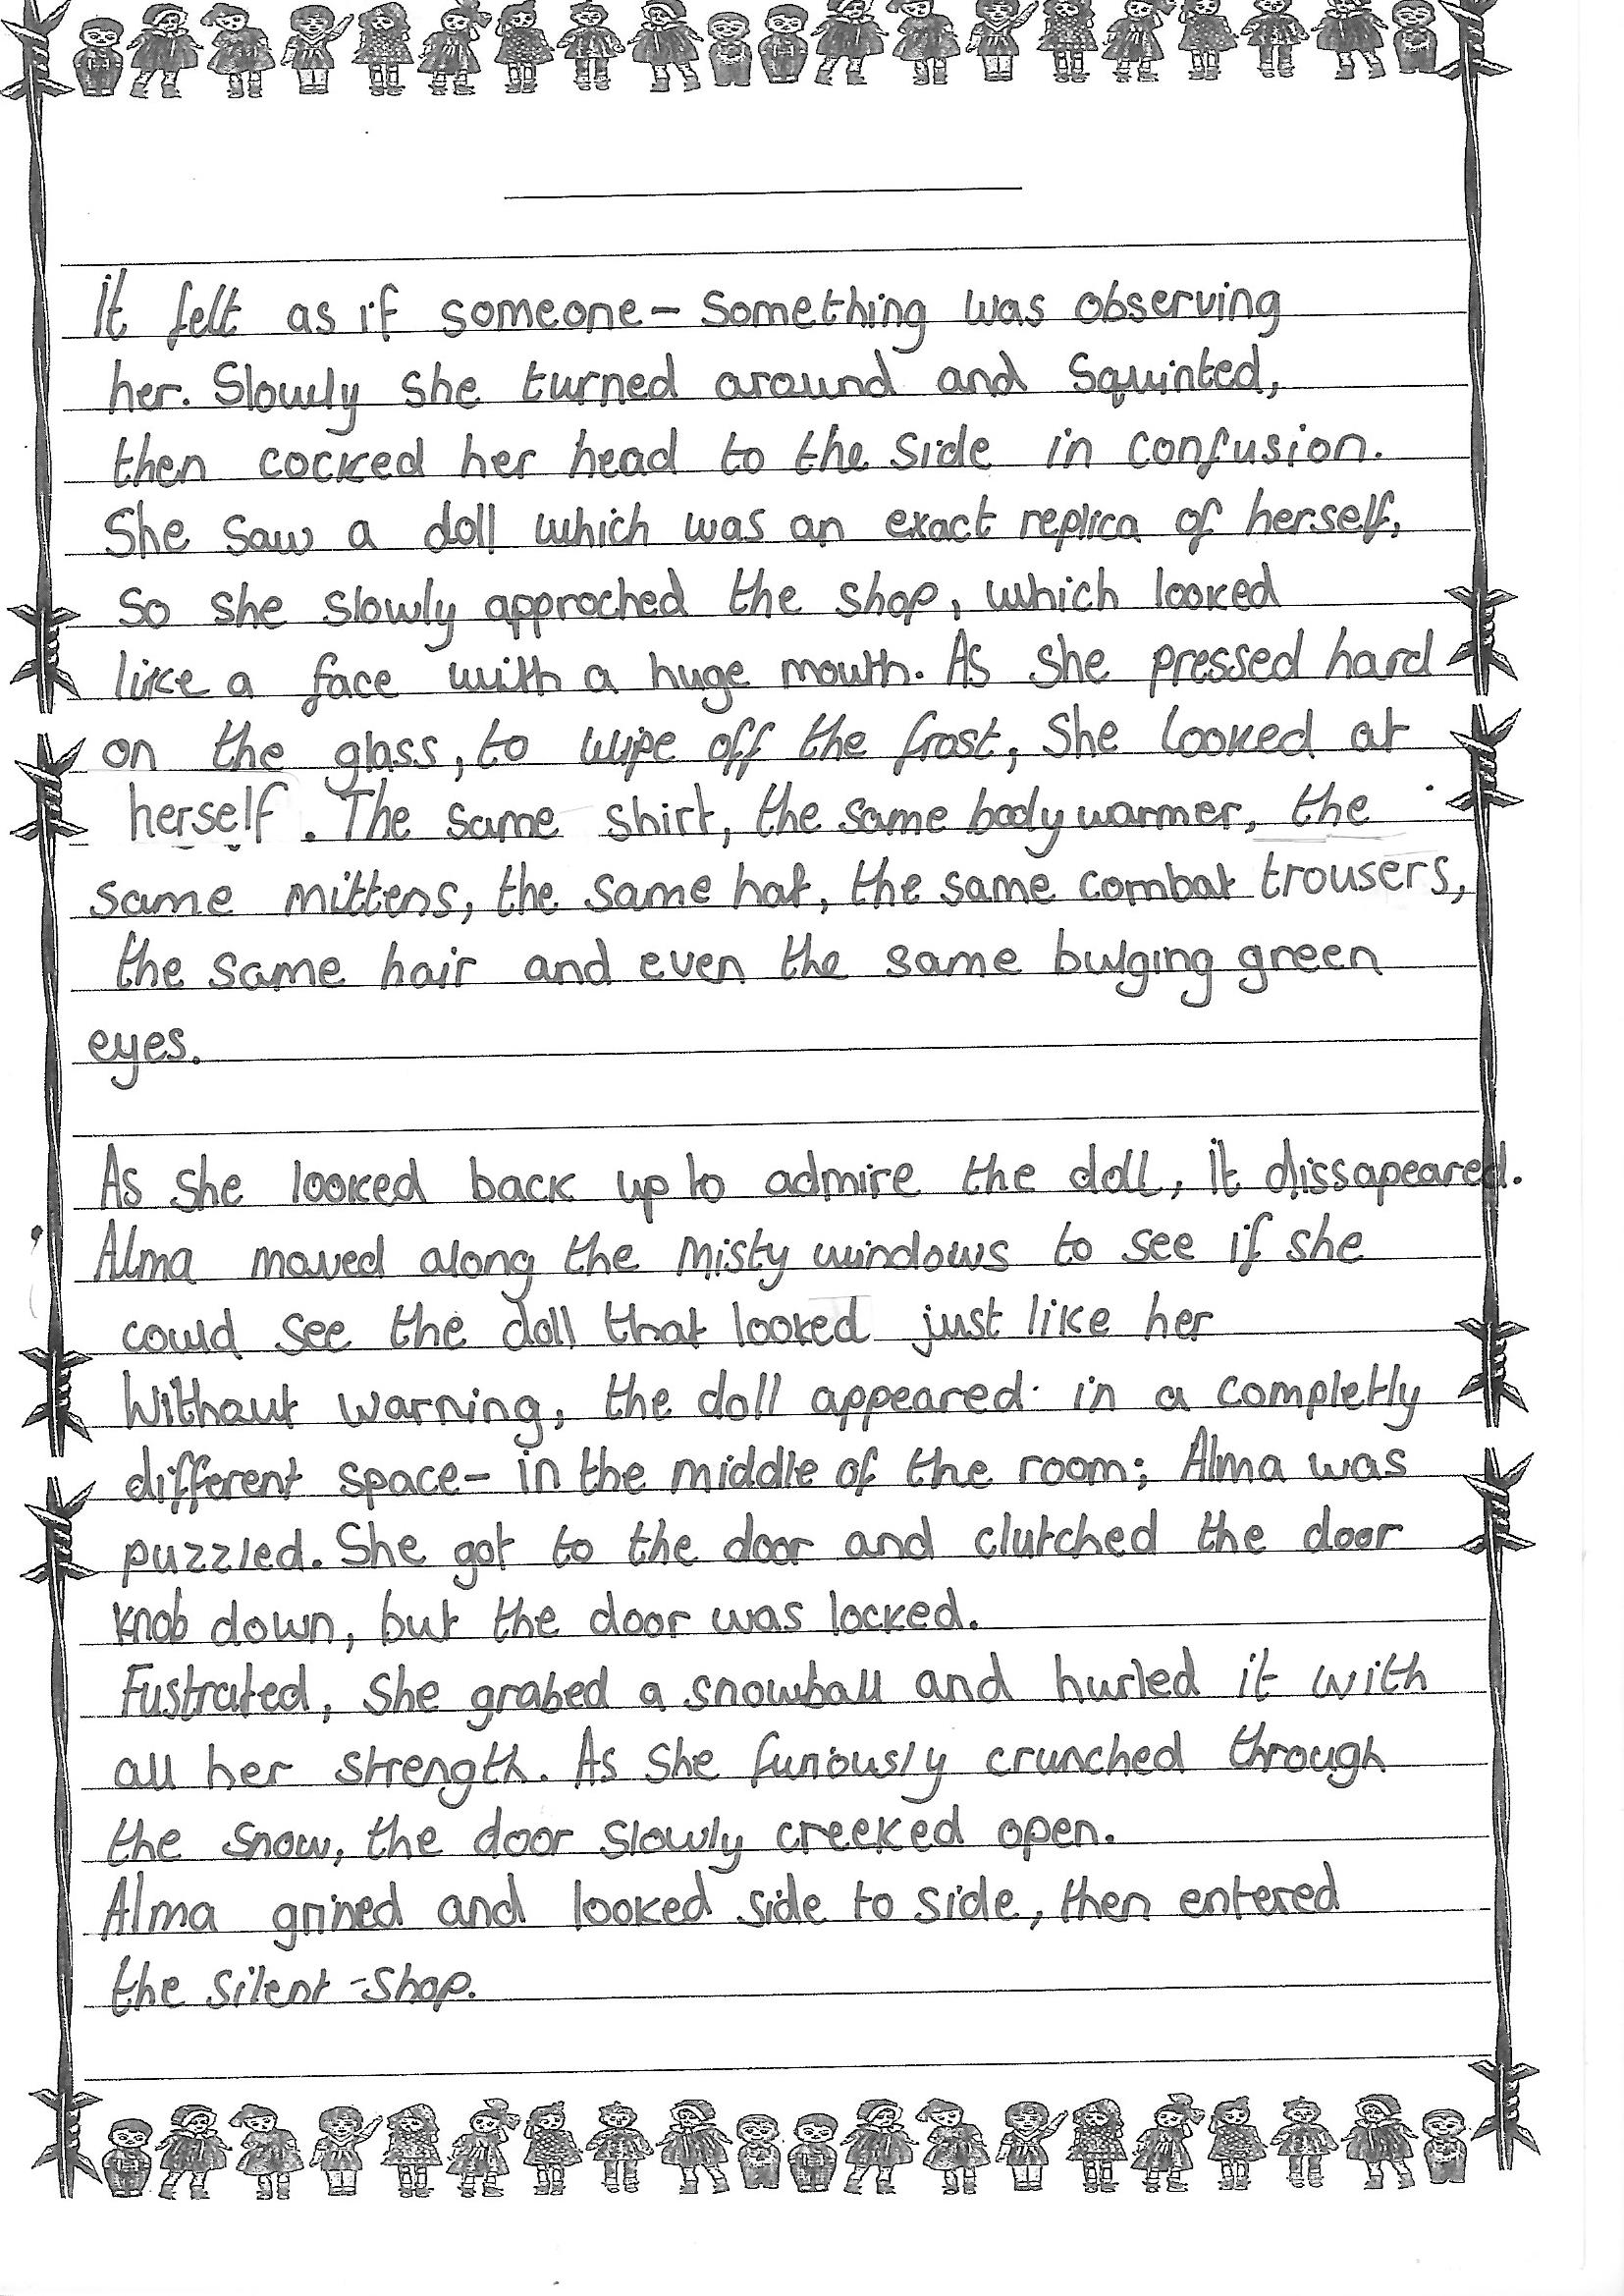 It felt as if someone- something was observing
her. Slowly she turned around and squinted,
then cocked her head to the side in confusion.
She saw a doll which was an exact replica of herself,
so she slowly approched the shop, which looked
like a face with a huge mouth. As she pressed hard
on the glass, to wipe off the frost, she looked at
herself. The same shirt, the same body warmer, the
same mittens, the same hat, the same combat trousers,
the same hair and even the same bulging green
eyes.
As she looked back up to admire the doll, it dissapeared.
Alma moved along the misty windows to see if she
could see the doll that looked just like her
Without warning, the doll appeared in a completly
different space- in the middle of the room; Alma was
puzzled. She got to the door and clutched the door
knob down, but the door was locked.
Fustrated, she grabed a snowball and hurled it with
all her strength. As she furiously crunched through
the snow, the door slowly creeked open.
Alma grined and looked side to side, then entered
the silent -shop.